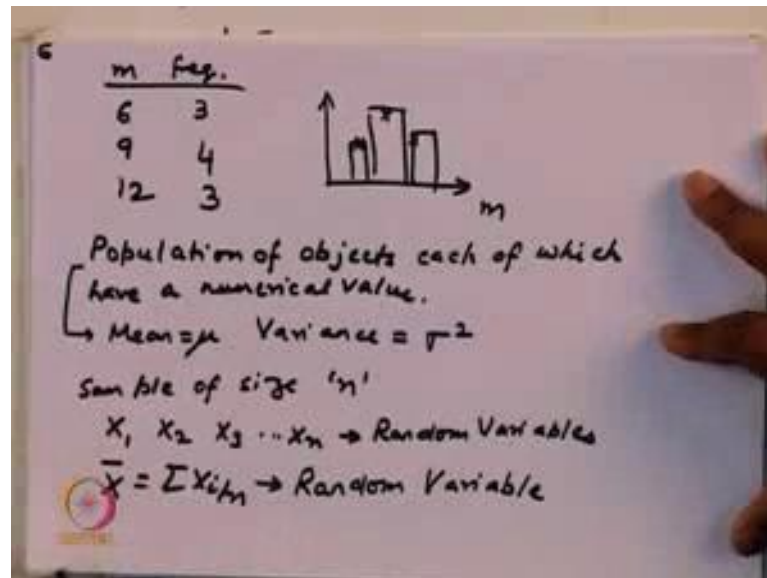 6
m freq.
6 3
9 4
12 3
m
Population of objects each of which
have a numerical value.
→ Mean = μ Variance = σ²
Sample of size 'n'
X₁ X₂ X₃ ... Xₙ → Random Variables
X̄ = ΣXi/n → Random Variable